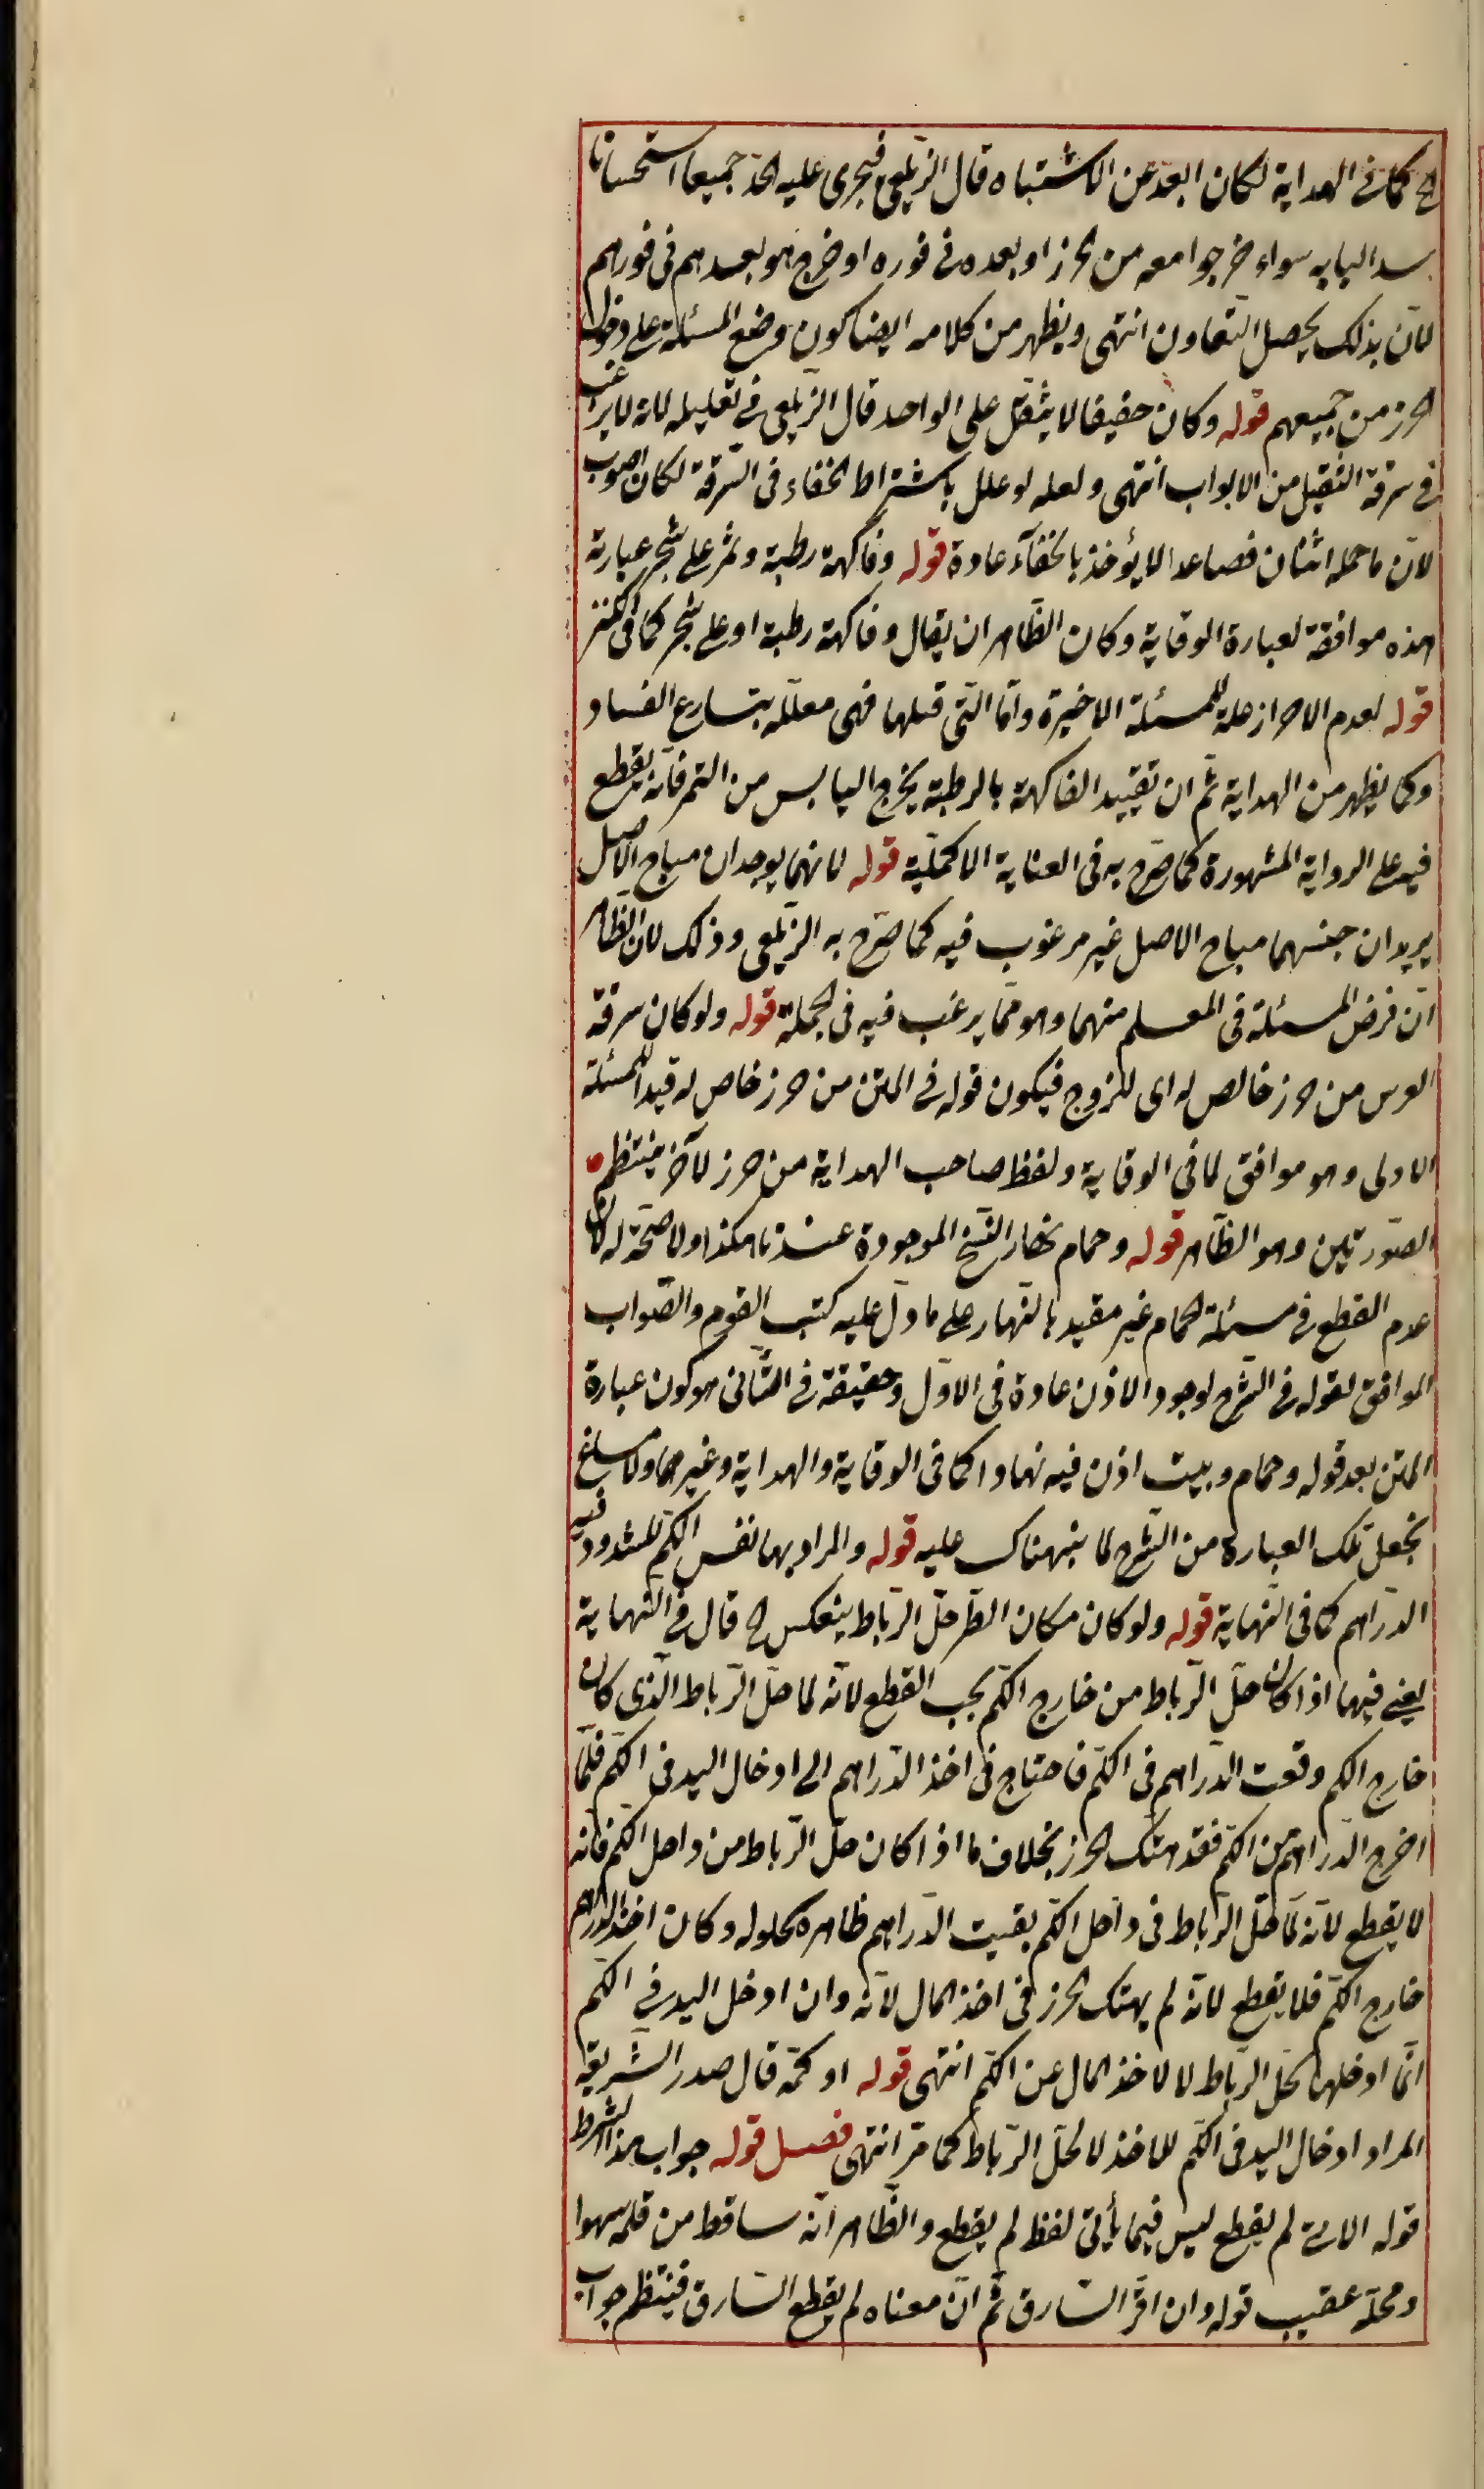 ح كما فى الهداية لكان ابعد عن الاشتباه قال الزيلعى فيجرى عليه الحد جميعا استحسانا
سد البابه سواء خرجوا معه من الحرز او بعده فى فوره او خرج هو بعدهم فى فورهم
لان بذلك يحصل التعاون انتهى ويظهر من كلامه ايضا كون وضع المسئلة على دخول
الحرز من جميعهم قوله وكان خفيفا لا يثقل على الواحد قال الزيلعى فى تعليله لانه لا يرغب
فى سرقة الثقيل من الابواب انتهى ولعله لو علل باشتراط الخفاء فى السرقة لكان اصوب
لان ما حمله اثنان فصاعدا لا يؤخذ بالخفآء عادة قوله وفاكهة رطبة وثمر على شجر عبارته
هذه موافقة لعبارة الوقاية وكان الظاهر ان يقال وفاكهة رطبة او على شجر كما فى الكنز
قوله لعدم الاحراز علة للمسئلة الاخيرة واما التى قبلها فهى معللة بتسارع الفساد
وكما يظهر من الهداية ثم ان تقييد الفاكهة بالرطبة يخرج اليابس من الثمر فانه يقطع
فيه على الرواية المشهورة كما صرح به فى العناية الاكملية قوله لانهما يوجدان مباح الاصل
يريد ان جنسهما مباح الاصل غير مرغوب فيه كما صرح به الزيلعى وذلك لان الظاهر
ان فرض المسئلة فى المعلم منهما وهو مما يرغب فيه فى الجملة قوله ولو كان سرقة
العرس من حرز خالص له اى للزوج فيكون قوله فى المتن من حرز خاص له قيدا للمسئلة
الاولى وهو موافق لما فى الوقاية ولفظ صاحب الهداية من حرز لآخر ينتظم
الصورتين وهو الظاهر قوله وحمام نهارا النسخ الموجودة عندنا هكذا ولا صحة له لان
عدم القطع فى مسئلة الحمام غير مقيد بالنهار على ما دل عليه كتب القوم والصواب
الموافق لقوله فى الشرح لوجود الاذن عادة فى الاول وحقيقة فى الثانى هو كون عبارة
المتن بعد قوله وحمام وبيت اذن فيه نهارا كما فى الوقاية والهداية وغيرهما ولا مساغ
لجعل تلك العبارة من الشرح لما نبهناك عليه قوله والمراد بها نفس الكم المشدود فيه
الدراهم كما فى النهاية قوله ولو كان مكان الطر حل الرباط ينعكس ح قال فى النهاية
يعنى فيها اذا كان حل الرباط من خارج الكم يجب القطع لانه لما حل الرباط الذى كان
خارج الكم وقعت الدراهم فى الكم فاحتاج فى اخذ الدراهم الى ادخال اليد فى الكم فلما
اخرج الدراهم من الكم فقد هتك الحرز بخلاف ما اذا كان حل الرباط من داخل الكم فانه
لا يقطع لانه لما حل الرباط فى داخل الكم بقيت الدراهم ظاهرة محلوله وكان اخذ الدراهم
خارج الكم فلا يقطع لانه لم يهتك الحرز فى اخذ المال لانه وان ادخل اليد فى الكم
انما ادخلها لحل الرباط لا لاخذ المال عن الكم انتهى قوله او كمه قال صدر الشريعة
المراد ادخال اليد فى الكم للاخذ لا لحل الرباط كما مر انتهى فصل قوله جواب هذا الشرط
قوله الاتى لم يقطع ليس فيما يأتى لفظ لم يقطع والظاهر انه ساقط من قلمه سهوا
ومحله عقيب قوله وان اقر السارق ثم ان معناه لم يقطع السارق فينتظم جواب